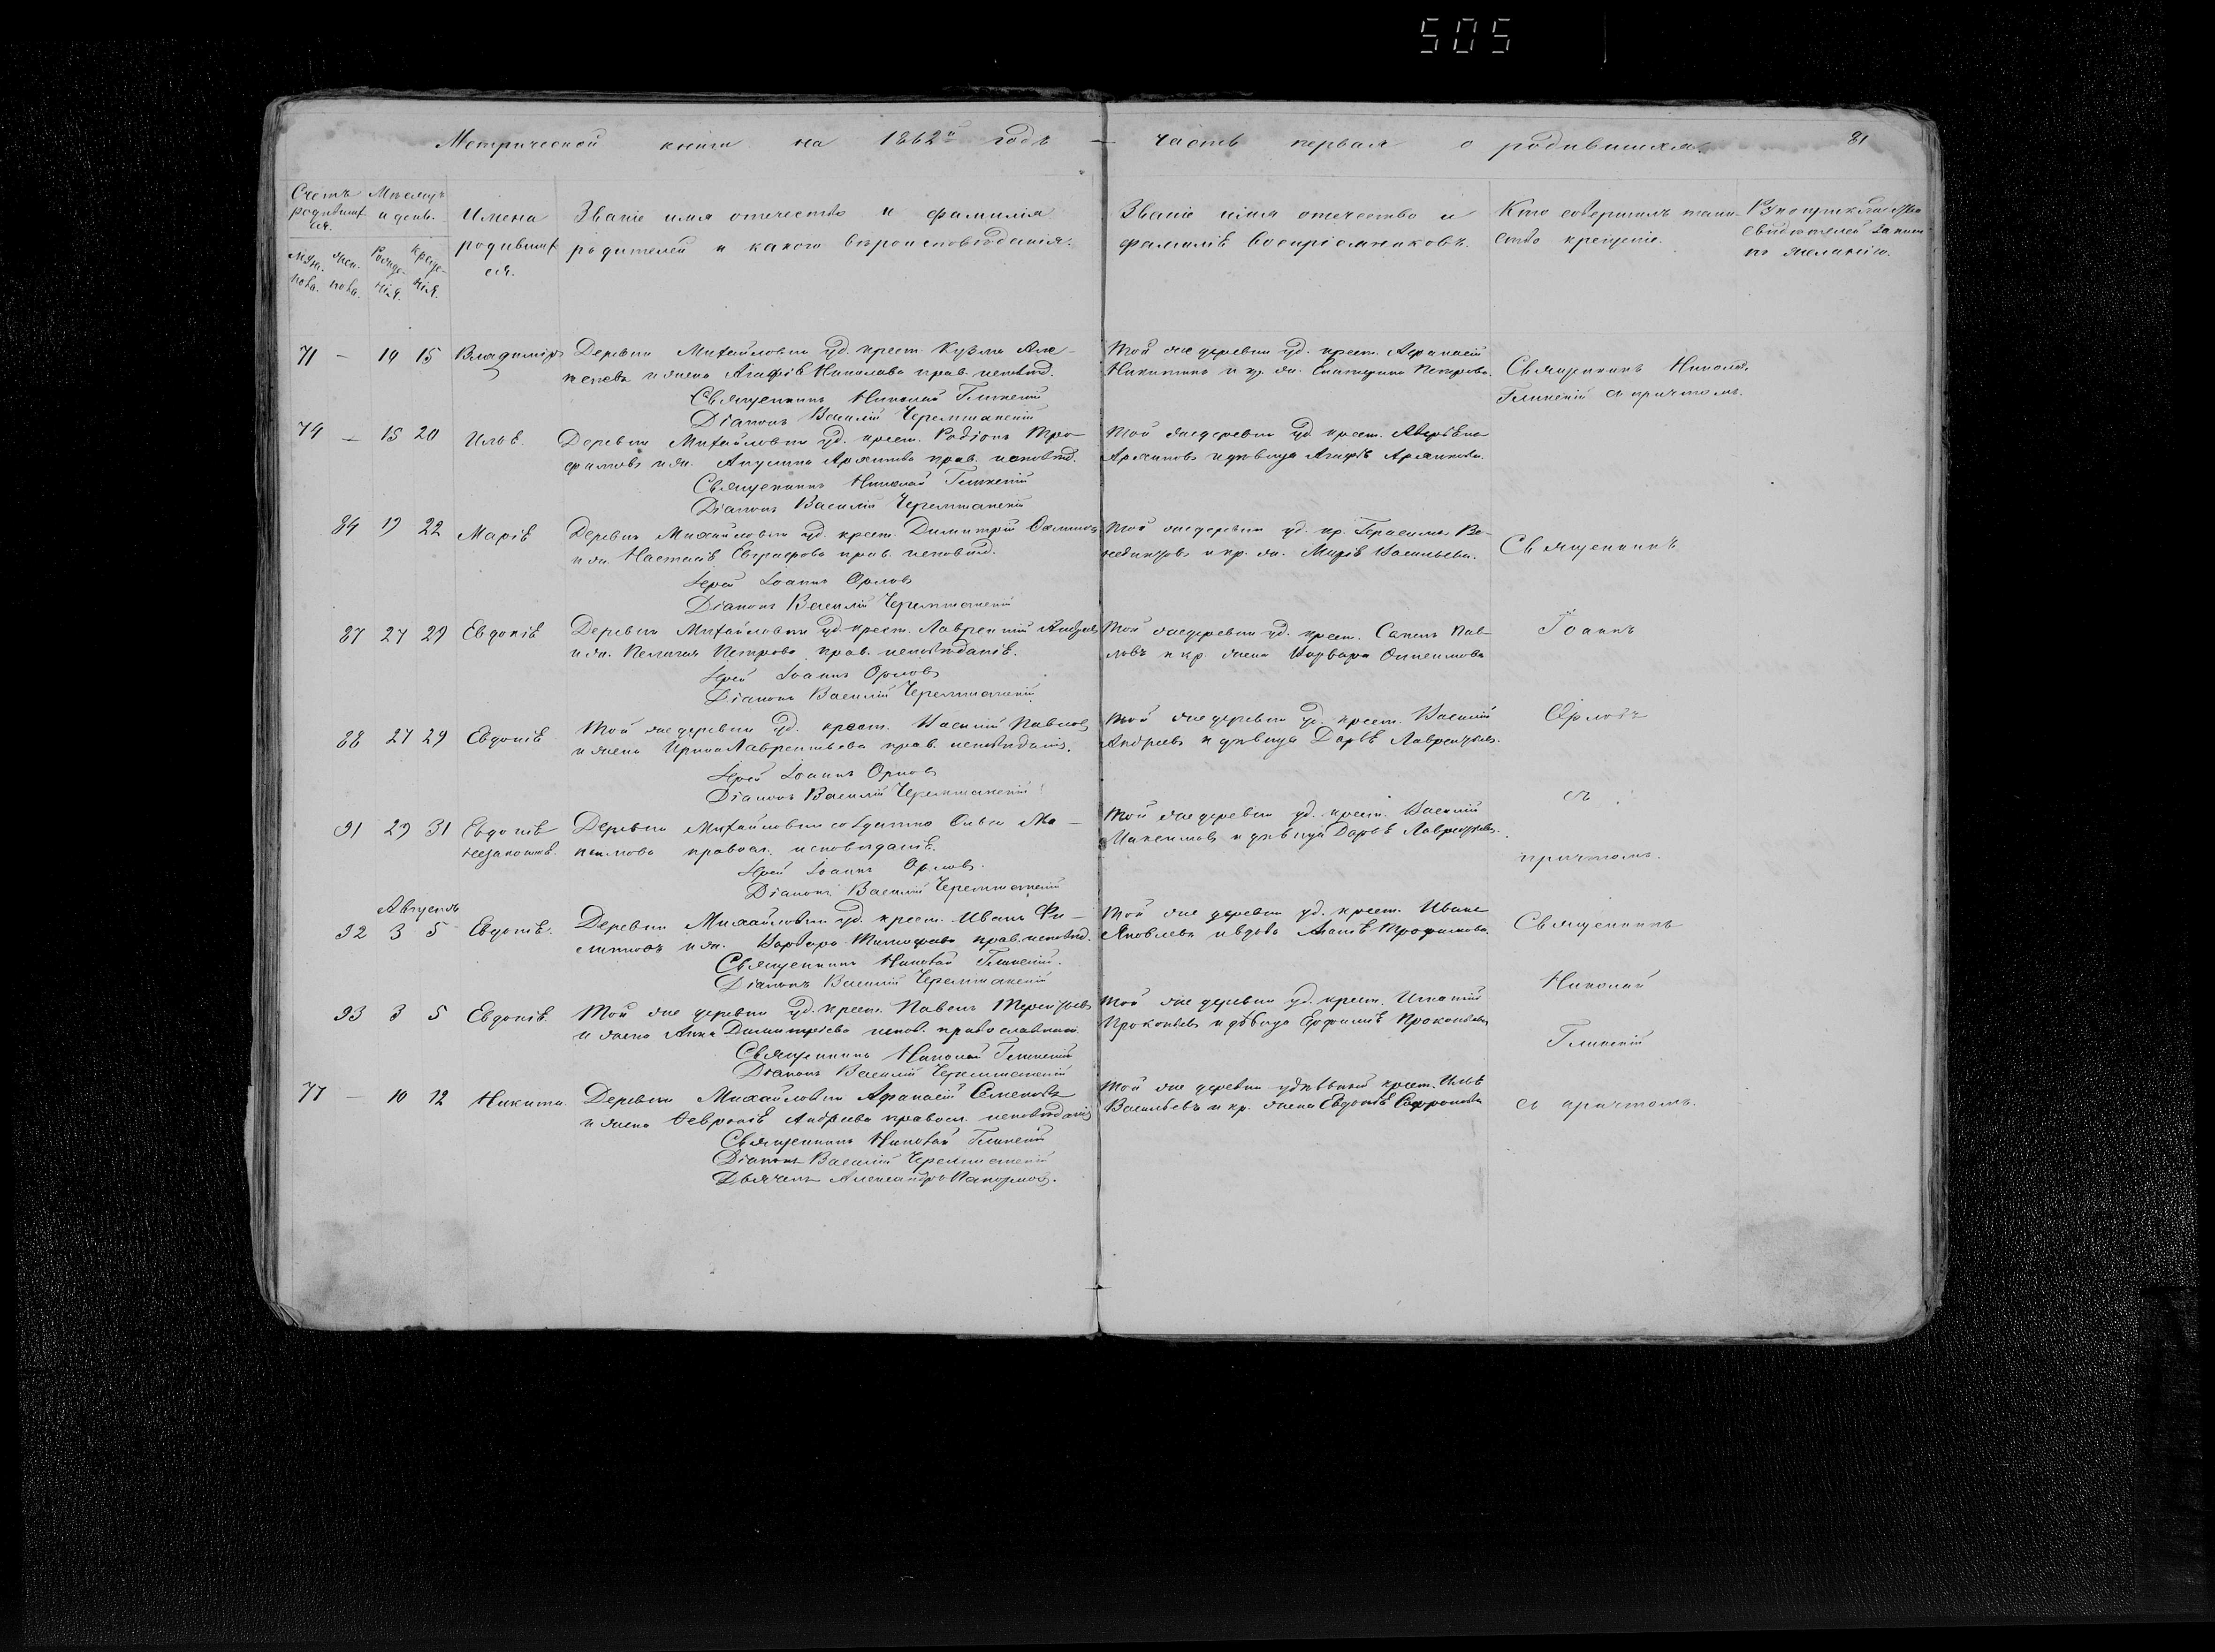 505
Метрической книги на 1862й годъ — часть первая о родившихся. 81
Счетъ родивших-ся. Мѣсяцъ и день. Имена родивших-ся. Званіе имя отечество и фамилія родителей и какого вѣроисповѣданія.
Муж. пола. Жен. пола. Рожде-нія. Креще-нія.
Званіе имя отечество и фамиліѣ воспріемниковъ.
Кто совершилъ таин-ство крещеніе.
по желанію.
71 — 14 15 Владиміръ Деревни Михайловки уд. крест. Кузма Але-
ксеевъ и жена Агафіѣ Николаева прав. исповѣд.
Священникъ Николай Глинскій
Діаконъ Василій Черемшанскій
Той же деревни уд. крест. Афанасій
Никитинъ и кр. жн. Екатерина Петрова.
Священникъ Николай
Глинскій съ причтомъ.
74 — 15 20 Ильѣ. Деревни Михайловки уд. крест. Родіонъ Тро-
фимовъ и жн. Акулина Архипова прав. исповѣд.
Священникъ Николай Глинскій
Діаконъ Василій Черемшанскій
Той же деревни уд. крест.
Архиповъ и дѣвица Агафіѣ Архипова.
84 19 22 Маріѣ Деревни Михайловки уд. крест. Димитрій
и жн. Настасіѣ Евграфова прав. исповѣд.
Іерей Іоаннъ Орловъ
Діаконъ Василій Черемшанскій
Той же деревни уд. кр. Герасимъ Ве-
недиктовъ и кр. жн. Маріѣ Васильева.
Священникъ
87 27 29 Евдокіѣ Деревни Михайловки уд. крест. Лаврентій Андреевъ
и жн. Пелагея Петрова прав. исповѣданіѣ.
Іерей Іоаннъ Орловъ
Діаконъ Василій Черемшанскій
Той же деревни уд. крест. Пав-
ловъ и кр. жена Варвара
Іоаннъ
88 27 29 Евдокіѣ Той же деревни уд. крест. Василій Павловъ
и жена Ирина Лаврентьева прав. исповѣданіѣ.
Іерей Іоаннъ Орловъ
Діаконъ Василій Черемшанскій
Той же деревни уд. крест. Василій
Андреевъ и дѣвица Дарьѣ Лаврентьева.
Орловъ
91 29 31 Евдокіѣ незаконнѣ. Деревни Михайловки солдатка Ма-
ксимова правосл. исповѣданіѣ.
Іерей Іоаннъ Орловъ.
Діаконъ Василій Черемшанскій
Той же деревни уд. крест. Василій
Максимовъ и дѣвица Дарьѣ Лаврентьева.
съ
причтомъ.
Августъ
92 3 5 Евдокіѣ. Деревни Михайловки уд. крест. Иванъ Фи-
липповъ и жн. Варвара Тимофеева прав. исповѣд.
Священникъ Николай Глинскій.
Діаконъ Василій Черемшанскій
Той же деревни уд. крест. Иванъ
Яковлевъ и вдова Трофимова.
Священникъ
93 3 5 Евдокіѣ. Той же деревни уд. крест. Павелъ Терентьевъ
и жена Анна Димитріева испов. православнаго
Священникъ Николай Глинскій
Діаконъ Василій Черемшанскій
Той же деревни уд. крест. Игнатій
Прокопьевъ и дѣвица Ефиміѣ Прокопьева
Николай
Глинскій
77 — 10 12 Никита. Деревни Михайловки Афанасій Семеновъ
и жена Февроніѣ Андреева правосл. исповѣданіѣ
Священникъ Николай Глинскій
Діаконъ Василій Черемшанскій
Дьячекъ Александръ
Той же деревни удѣльный крест. Ильѣ
Васильевъ и кр. жена Евдокіѣ Софронова
съ причтомъ.